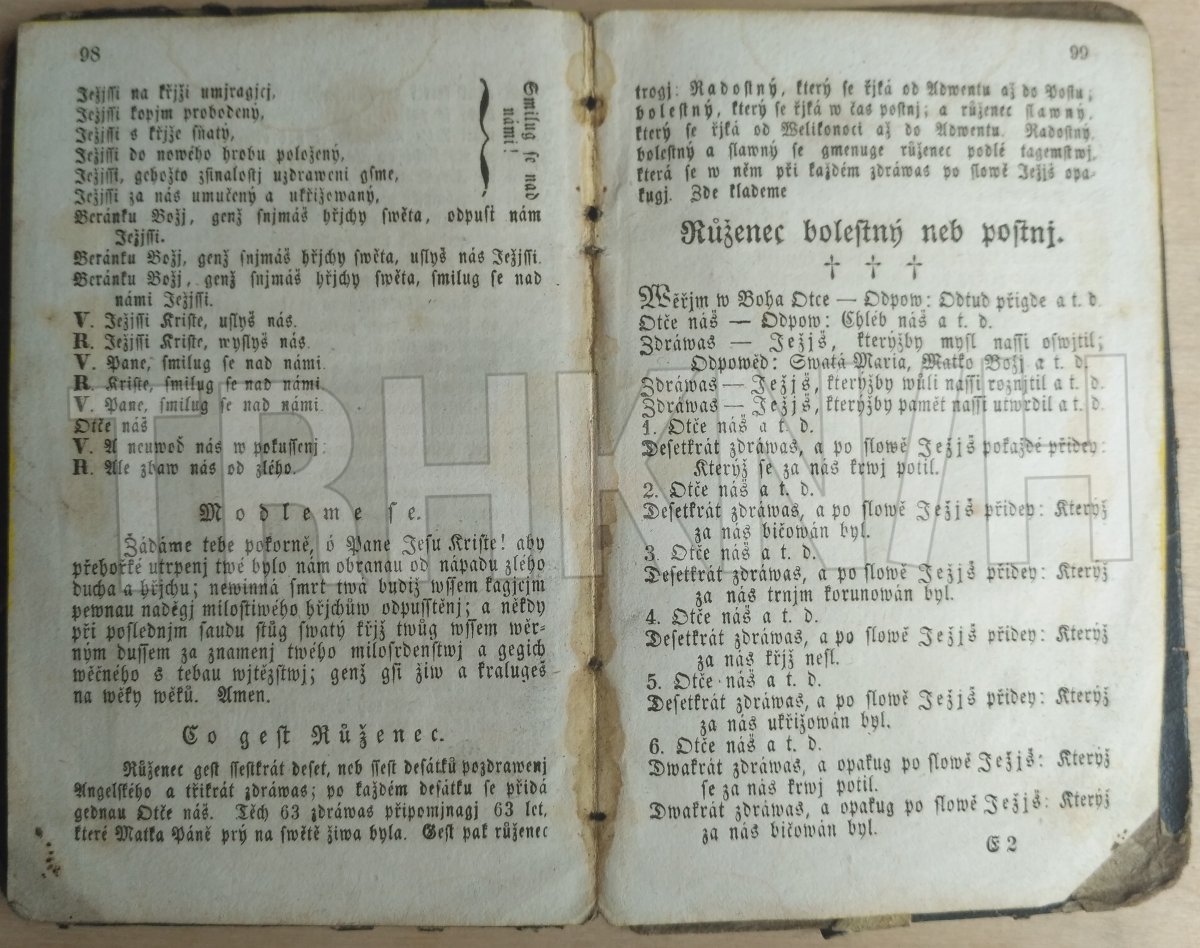 98
Ježjſſi na křjži umjragjcj,
Ježjſſi kopjm probodený,
Ježjſſi s křjže ſňatý,
Ježjſſi do nowého hrobu položený,
Ježjſſi, gehožto zſinaloſtj uzdraweni gſme,
Ježjſſi za nás umučený a ukřižowaný,
Smilug ſe nad
námi!
Beránku Božj, genž ſnjmáš hřjchy ſwěta, odpuſt nám
Ježjſſi.
Beránku Božj, genž ſnjmáš hřjchy ſwěta, uſlyš nás Ježjſſi.
Beránku Božj, genž ſnjmáš hřjchy ſwěta, ſmilug ſe nad
námi Ježjſſi.
V. Ježjſſi Kriſte, uſlyš nás.
R. Ježjſſi Kriſte, wyſlyš nás.
V. Pane, ſmilug ſe nad námi.
R. Kriſte, ſmilug ſe nad námi.
V. Pane, ſmilug ſe nad námi.
Otče náš
V. A neuwoď nás w pokuſſenj:
R. Ale zbaw nás od zlého.
Modleme ſe.
Žádáme tebe pokorně, ó Pane Jeſu Kriſte! aby
přehořké utrpenj twé bylo nám obranau od nápadu zlého
ducha a hřjchu; newinná ſmrt twá budiž wſſem kagjcjm
pewnau naděgj miloſtiwého hřjchůw odpuſſtěnj; a někdy
při poſlednjm ſaudu ſtůg ſwatý křjž twůg wſſem wěr-
ným duſſem za znamenj twého miloſrdenſtwj a gegich
wěčného s tebau wjtězſtwj; genž gſi žiw a kralugeš
na wěky wěků. Amen.
Co geſt Růženec.
Růženec geſt ſſeſtkrát deſet, neb ſſeſt deſátků pozdrawenj
Angelſkého a třikrát zdráwas; po každém deſátku ſe přidá
gednau Otče náš. Těch 63 zdráwas připomjnagj 63 let,
které Matka Páně prý na ſwětě žiwa byla. Geſt pak růženec
99
trogj: Radoſtný, který ſe řjká od Adwentu až do Poſtu;
boleſtný, který ſe řjká w čas poſtnj; a růženec ſlawný,
který ſe řjká od Welikonoci až do Adwentu. Radoſtný,
boleſtný a ſlawný ſe gmenuge růženec podlé tagemſtwj,
která ſe w něm při každém zdráwas po ſlowě Ježjš opa-
kugj. Zde klademe
Růženec boleſtný neb poſtnj.
† † †
Wěřjm w Boha Otce — Odpow: Odtud přigde a t. d.
Otče náš — Odpow: Chléb náš a t. d.
Zdráwas — Ježjš, kterýžby myſl naſſi oſwjtil;
Odpowěd: Swatá Maria, Matko Božj a t. d.
Zdráwas — Ježjš, kterýžby wůli naſſi roznjtil a t. d.
Zdráwas — Ježjš, kterýžby pamět naſſi utwrdil a t. d.
1. Otče náš a t. d.
Deſetkrát zdráwas, a po ſlowě Ježjš pokaždé přidey:
Kterýž ſe za nás krwj potil.
2. Otče náš a t. d.
Deſetkrát zdráwas, a po ſlowě Ježjš přidey: Kterýž
za nás bičowán byl.
3. Otče náš a t. d.
Deſetkrát zdráwas, a po ſlowě Ježjš přidey: Kterýž
za nás trnjm korunowán byl.
4. Otče náš a t. d.
Deſetkrát zdráwas, a po ſlowě Ježjš přidey: Kterýž
za nás křjž neſl.
5. Otče náš a t. d.
Deſetkrát zdráwas, a po ſlowě Ježjš přidey: Kterýž
za nás ukřižowán byl.
6. Otče náš a t. d.
Dwakrát zdráwas, a opakug po ſlowě Ježjš: Kterýž
ſe za nás krwj potil.
Dwakrát zdráwas, a opakug po ſlowě Ježjš: Kterýž
za nás bičowán byl.
E 2
TRHKNIH